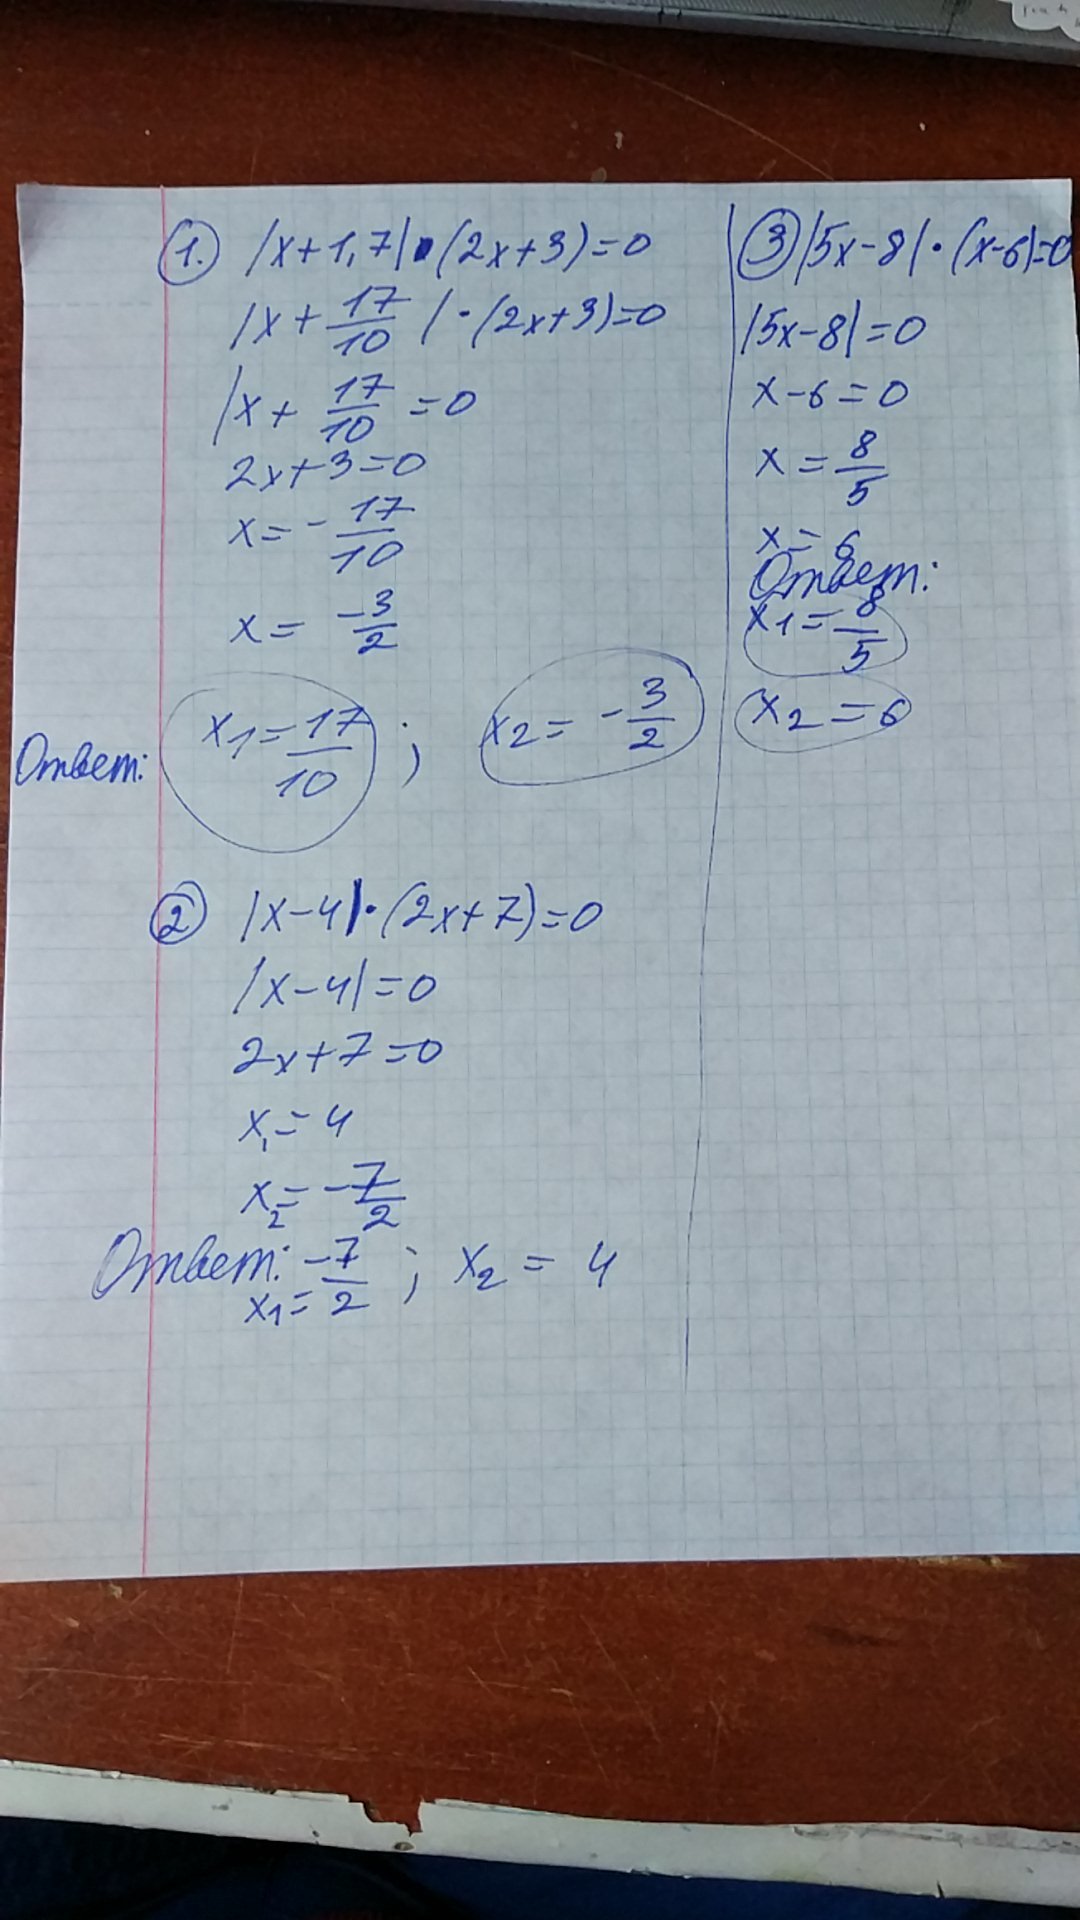 1. |x+1,7|·(2x+3)=0
|x+17/10|·(2x+3)=0
|x+17/10=0
2x+3=0
x=-17/10
x=-3/2
Ответ: x1=17/10; x2=-3/2
2 |x-4|·(2x+7)=0
|x-4|=0
2x+7=0
x1=4
x2=-7/2
Ответ: x1=-7/2; x2=4
3 |5x-8|·(x-6)=0
|5x-8|=0
x-6=0
x=8/5
x=6
Ответ:
x1=8/5
x2=6